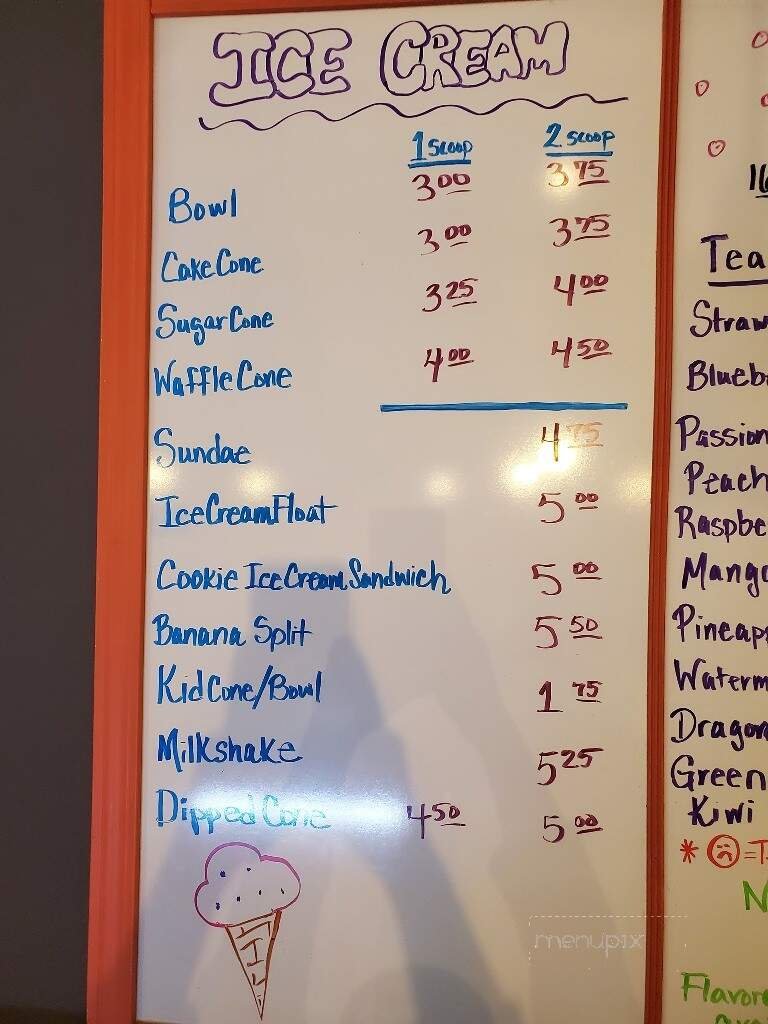 ICE CREAM
1 scoop 2 scoop
Bowl 3 00 3 75
Cake Cone 3 00 3 75
Sugar Cone 3 25 4 00
Waffle Cone 4 00 4 50
Sundae 4 75
Ice Cream Float 5 00
Cookie Ice Cream Sandwich 5 00
Banana Split 5 50
Kid Cone/Bowl 1 75
Milkshake 5 25
Dipped Cone 4 50 5 00
menupix
16
Tea
Straw
Blueb
Passion
Peach
Raspbe
Mango
Pineap
Waterm
Dragon
Green
Kiwi
* ☹ =
N
Flavore